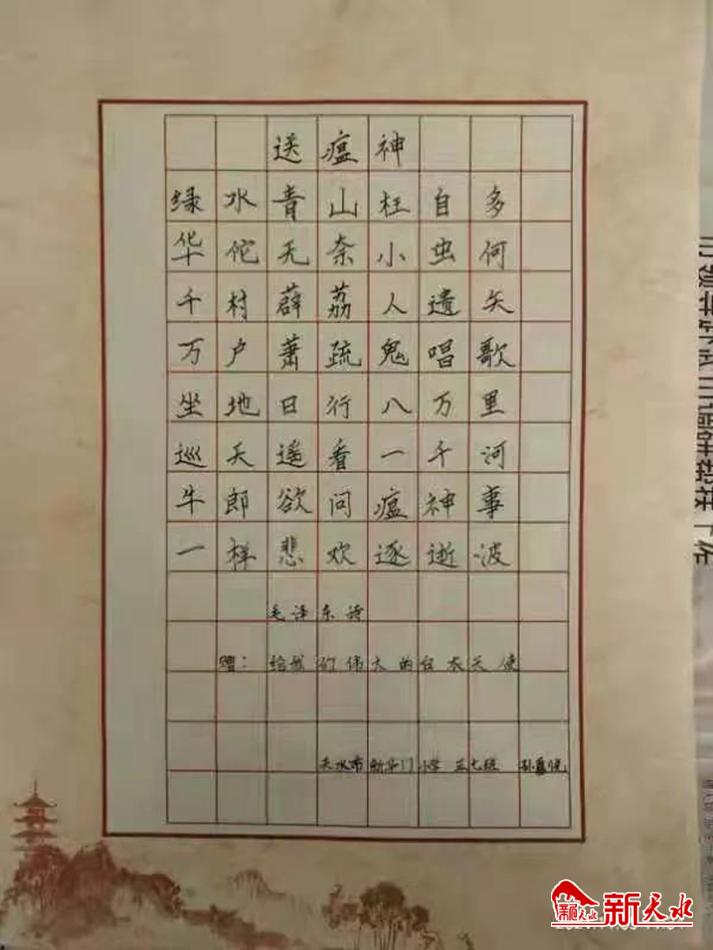 送瘟神
绿水青山枉自多
华佗无奈小虫何
千村薜荔人遗矢
万户萧疏鬼唱歌
坐地日行八万里
巡天遥看一千河
牛郎欲问瘟神事
一样悲欢逐逝波
毛泽东诗
赠：给我们伟大的白衣天使
天水市新华门小学 三七班
新天水